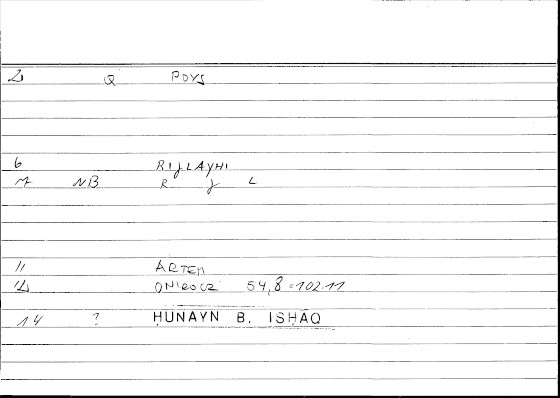 2 Q POVS
6 RIJLAYHI
7 NB R J L
11 ARTEM
12 ONIROCR 54,8=102.11
14 ? ḤUNAYN B. ISḤĀQ